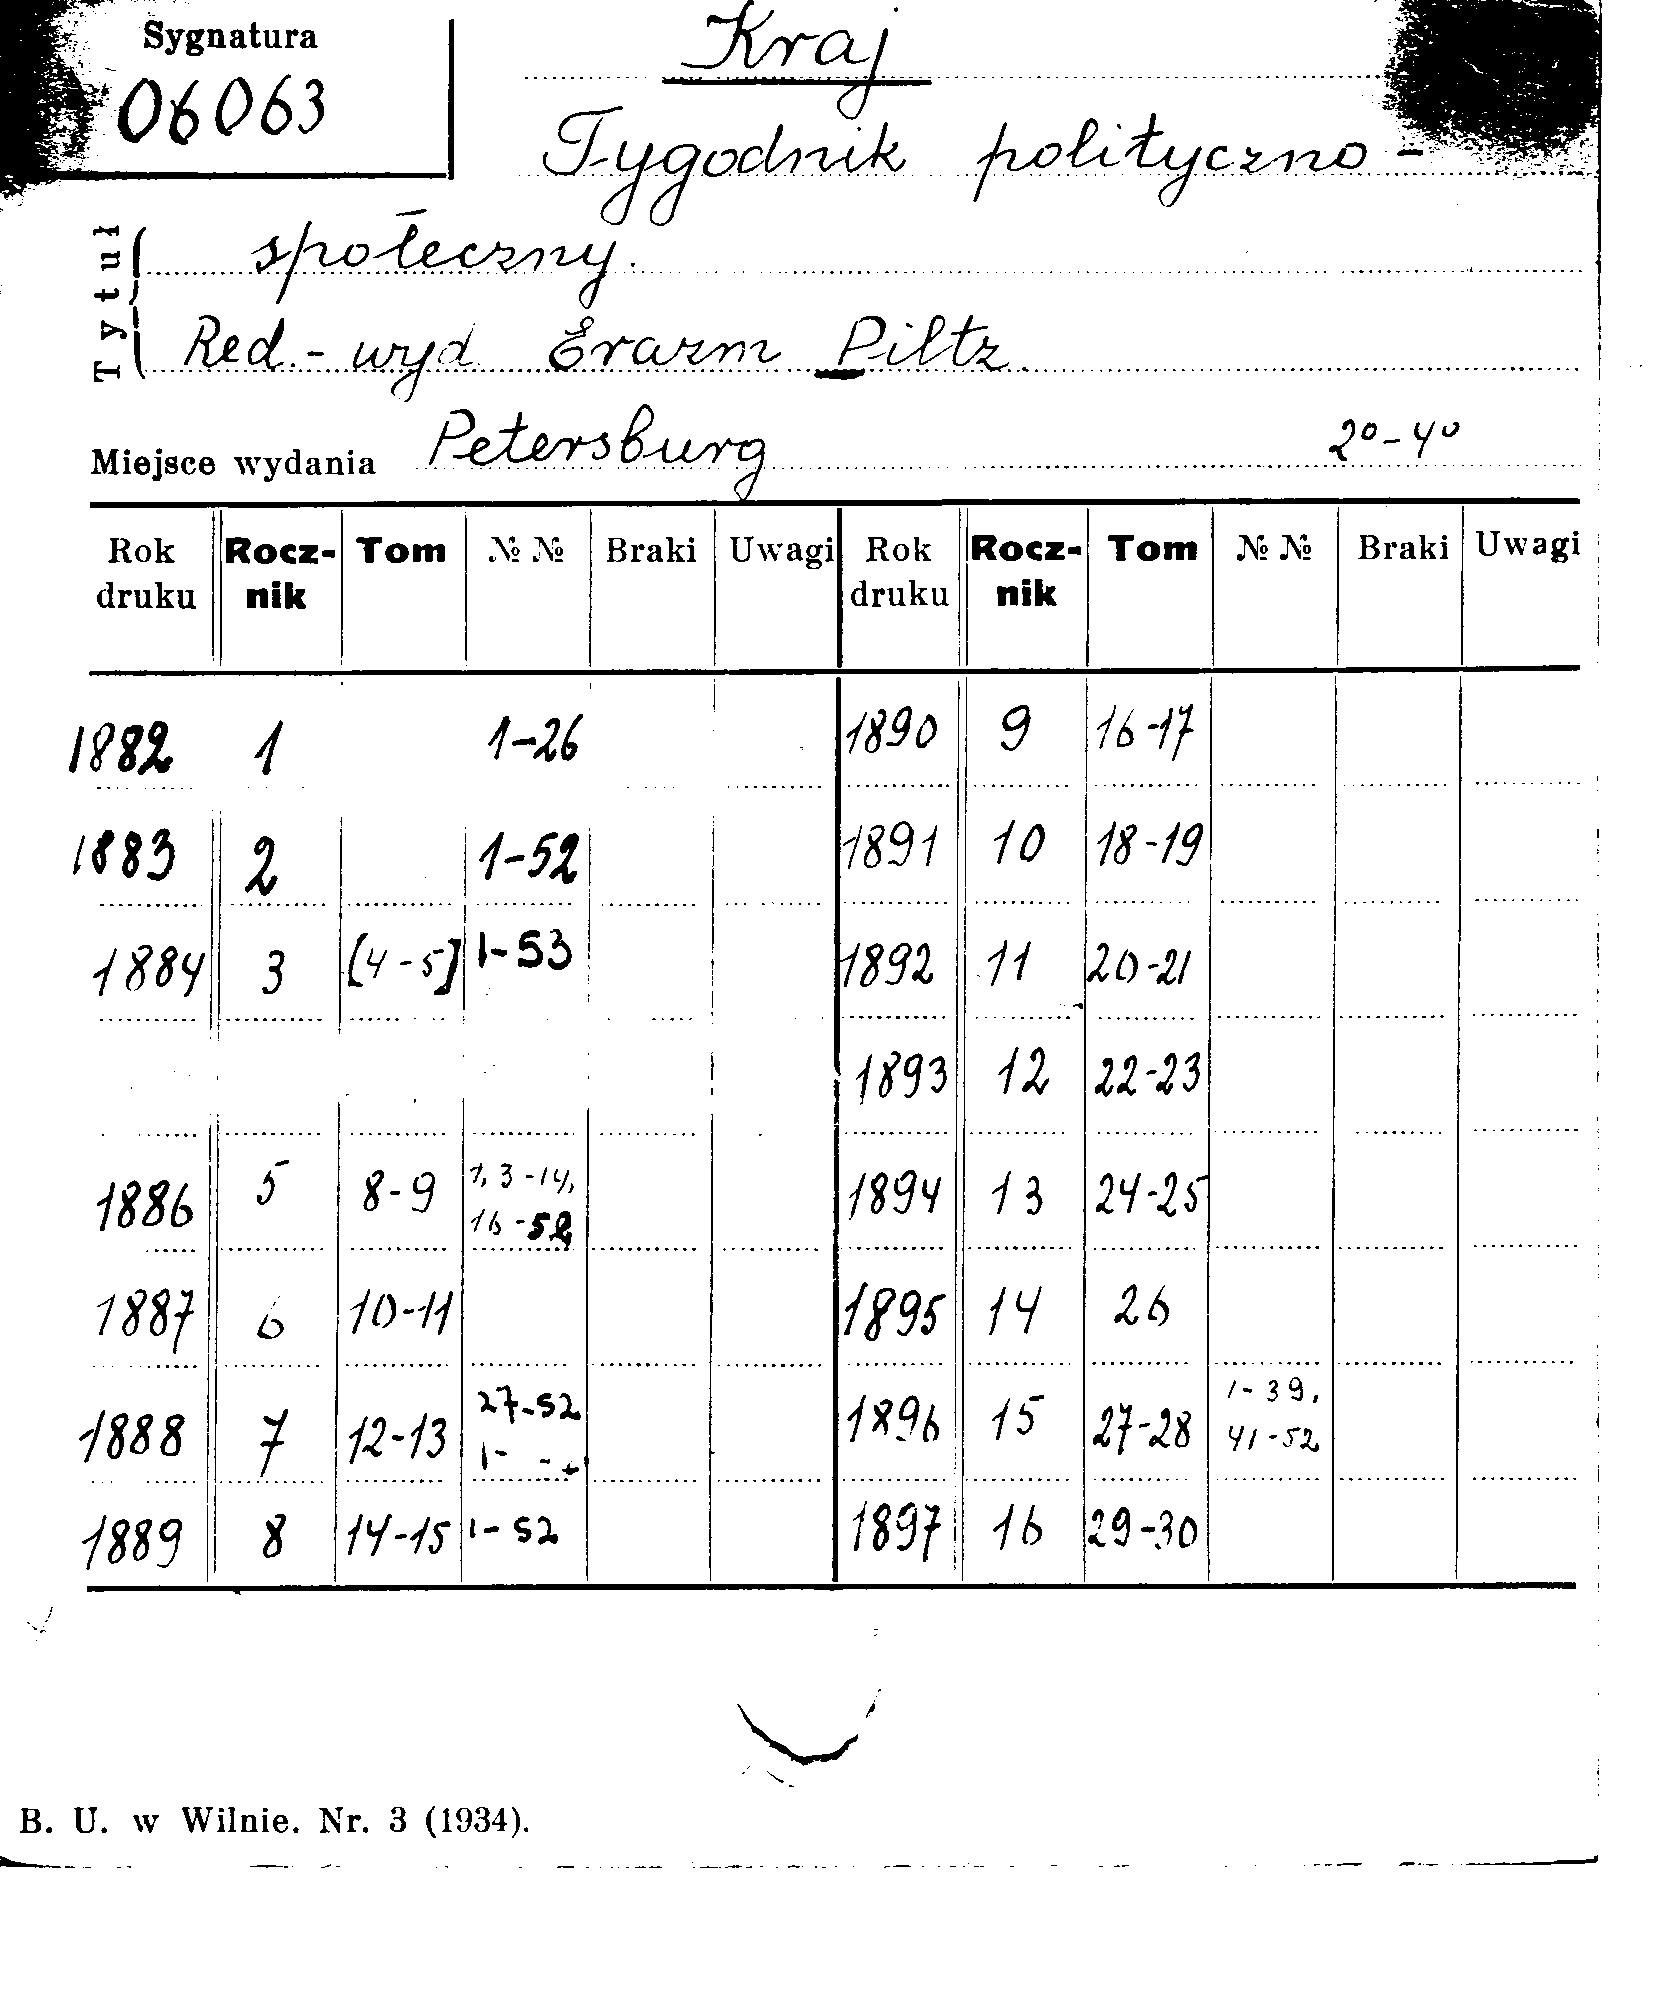 Sygnatura
06063
Kraj
Tygodnik polityczno-
społeczny.
Red.-wyd. Erazm Piltz.
Tytuł
Miejsce wydania Petersburg 2º-4º
Rok druku Rocz-nik Tom №№ Braki Uwagi Rok druku Rocz-nik Tom №№ Braki Uwagi
1882 1 1-26 1890 9 16-17
1883 2 1-52 1891 10 18-19
1884 3 [4-5] 1-53 1892 11 20-21
1893 12 22-23
1886 5 8-9 1, 3-14, 16-52 1894 13 24-25
1887 6 10-11 1895 14 26
1888 7 12-13 27-52 1896 15 27-28 1-39, 41-52
1889 8 14-15 1-52 1897 16 29-30
B. U. w Wilnie. Nr. 3 (1934).